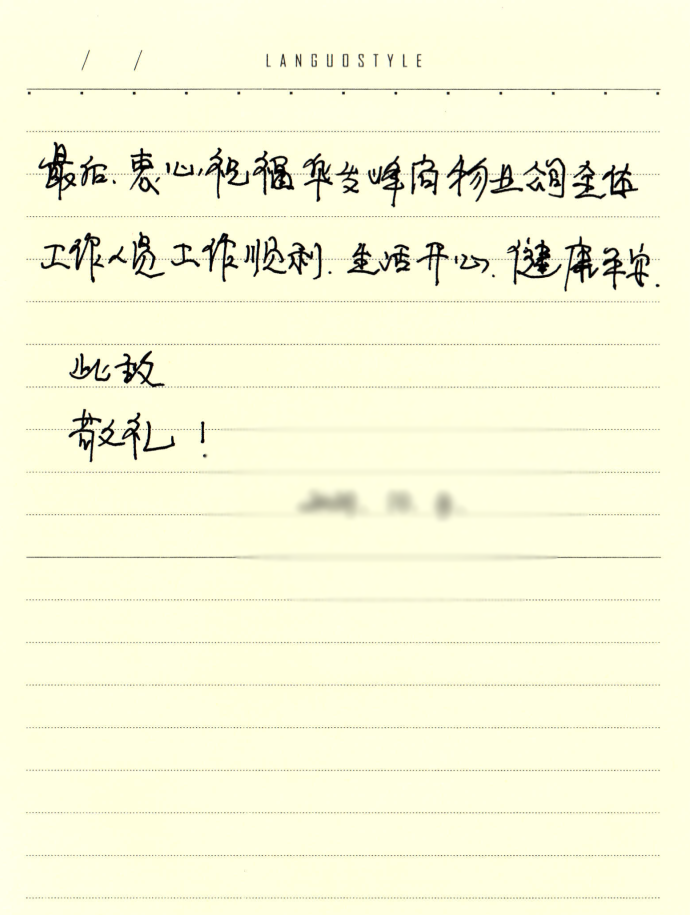 / /
LANGUOSTYLE
最后、衷心祝福华发峰尚物业公司全体
工作人员工作顺利、生活开心、健康平安.
此致
敬礼!